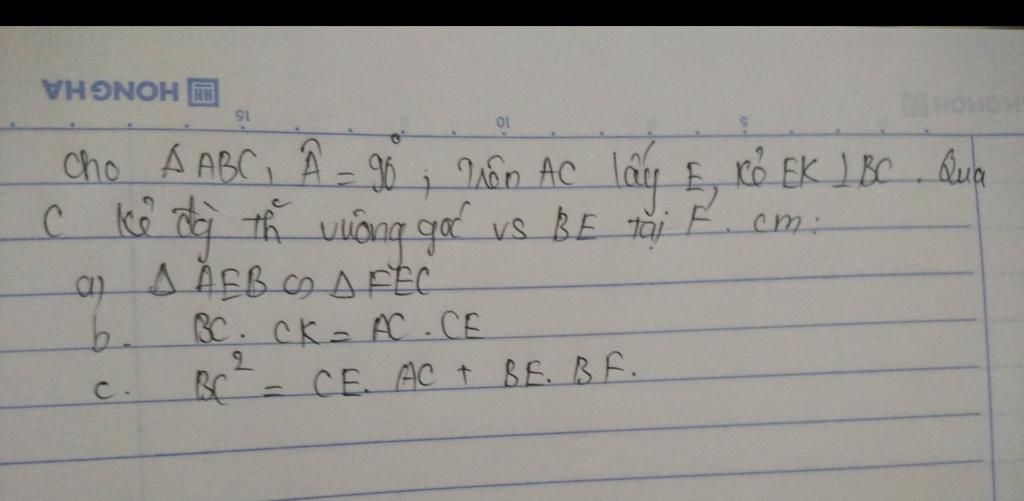 HONG HA
15 10 5
HONG HA
Cho Δ ABC, Â = 90°; trên AC lấy E, kẻ EK ⊥ BC. Qua
C kẻ đg th̃ vuông góc vs BE tại F. cm:
a) Δ AEB ∽ Δ FEC
b. BC. CK = AC. CE
c. BC² = CE. AC + BE. BF.